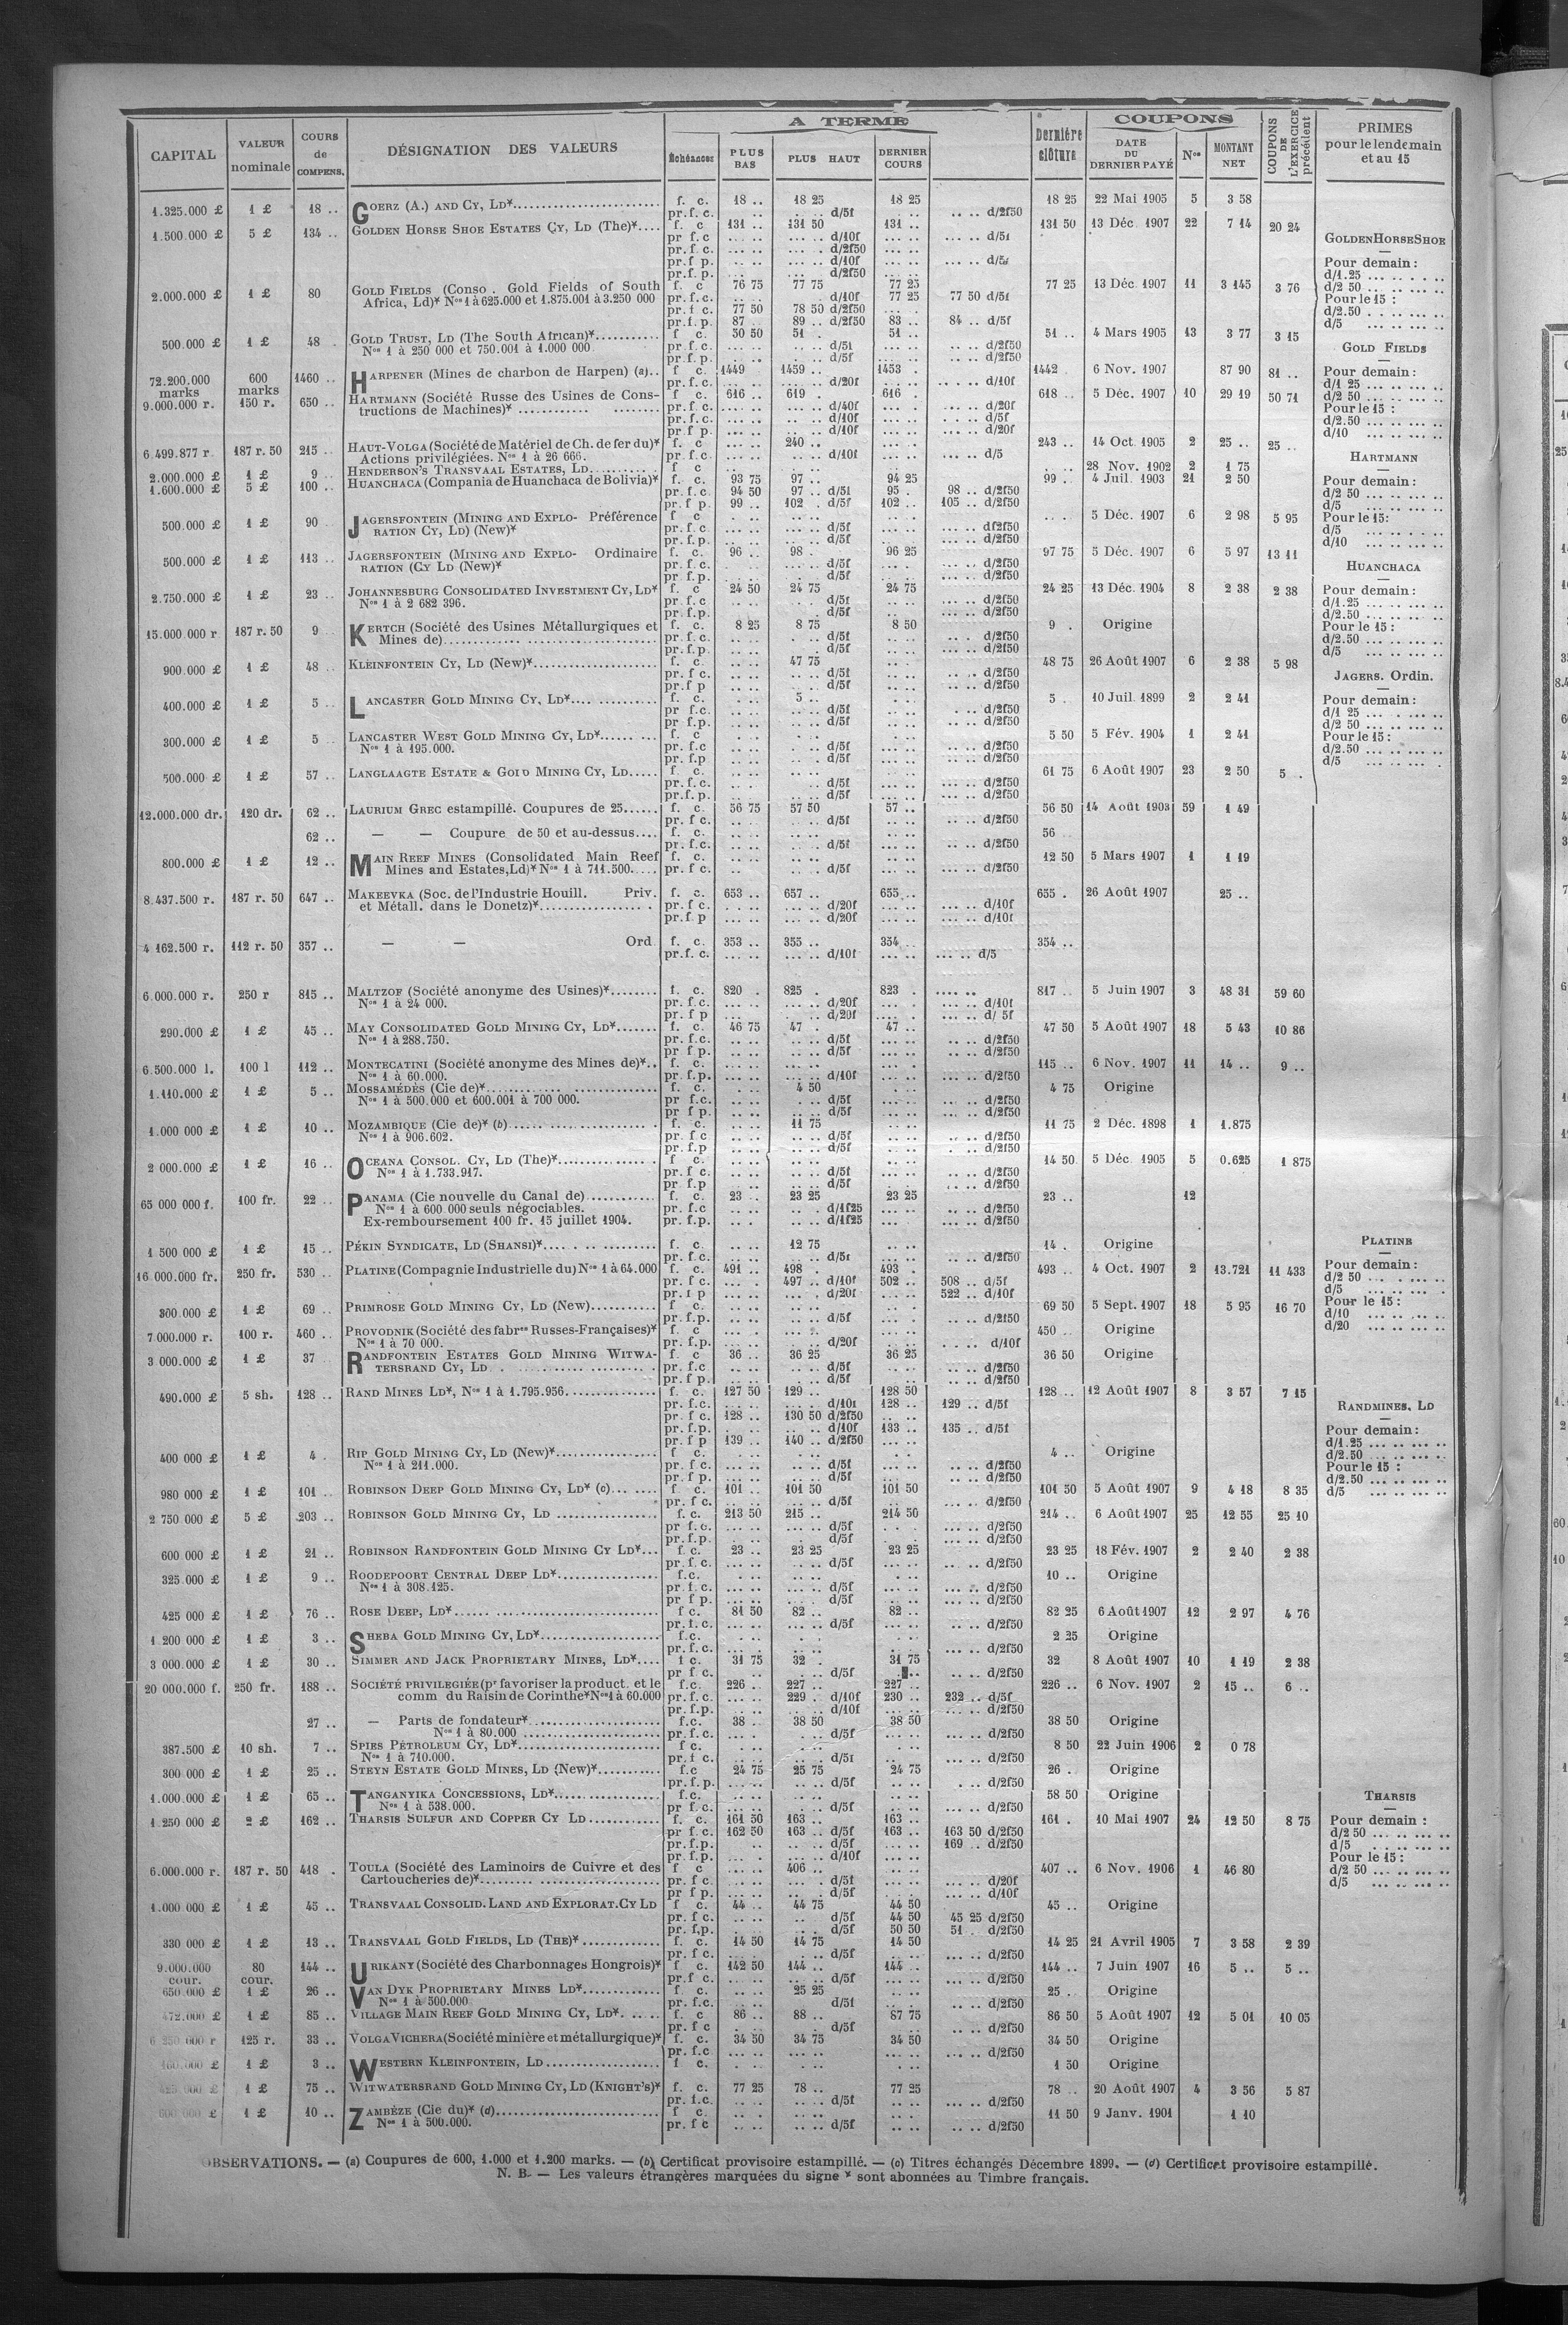 A TERME
COUPONS
CAPITAL | VALEUR nominale | COURS de COMPENS. | DÉSIGNATION DES VALEURS | Échéances | PLUS BAS | PLUS HAUT | DERNIER COURS | Dernière clôture | DATE DU DERNIER PAYÉ | Nos | MONTANT NET | COUPONS DE L'EXERCICE précédent | PRIMES pour le lendemain et au 15
1.325.000 £ | 1 £ | 18 .. | GOERZ (A.) AND CY, LD* | f. c. | 18 .. | 18 25 | 18 25 | 18 25 | 22 Mai 1905 | 5 | 3 58
pr. f. c. | d/5f | d/2f50
1.500.000 £ | 5 £ | 134 .. | GOLDEN HORSE SHOE ESTATES CY, LD (The)* | f. c | 131 .. | 131 50 | 131 .. | 131 50 | 13 Déc. 1907 | 22 | 7 14 | 20 24
pr f. c | d/10f | d/5f
pr. f. c. | d/2f50
pr. f p. | d/10f | d/5f
pr. f. p. | d/2f50
2.000.000 £ | 1 £ | 80 | GOLD FIELDS (Conso . Gold Fields of South | f. c | 76 75 | 77 75 | 77 25 | 77 25 | 13 Déc. 1907 | 11 | 3 145 | 3 76
Africa, Ld)* Nos 1 à 625.000 et 1.875.001 à 3.250 000 | pr. f. c. | d/10f | 77 25 | 77 50 d/5f
pr. f. c. | 77 50 | 78 50 d/2f50
pr. f. p. | 87 | 89 .. d/2f50 | 83 .. | 84 .. d/5f
500.000 £ | 1 £ | 48 . | GOLD TRUST, LD (The South African)* | f c. | 50 50 | 51 . | 51 .. | 51 .. | 4 Mars 1905 | 13 | 3 77 | 3 15
Nos 1 à 250 000 et 750.001 à 1.000 000 | pr. f. c. | d/5f | d/2f50
pr. f. p. | d/5f | d/2f50
72.200.000 marks | 600 marks | 1460 .. | HARPENER (Mines de charbon de Harpen) (a).. | f c. | 1449 | 1459 .. | 1453 . | 1442 . | 6 Nov. 1907 | 87 90 | 81 ..
pr. f. c. | d/20f | d/10f
9.000.000 r. | 150 r. | 650 .. | HARTMANN (Société Russe des Usines de Cons- | f c. | 616 .. | 619 . | 616 . | 618 .. | 5 Déc. 1907 | 10 | 29 19 | 50 71
tructions de Machines)* | pr. f. c. | d/40f | d/20f
pr. f. c. | d/10f | d/5f
pr. f p. | d/10f | d/20f
6.499.877 r. | 187 r. 50 | 215 .. | HAUT-VOLGA (Société de Matériel de Ch. de fer du)* | f. c | 240 .. | 243 .. | 14 Oct. 1905 | 2 | 25 .. | 25 ..
Actions privilégiées. Nos 1 à 26 666. | pr. f. c. | d/10f | d/5
2.000.000 £ | 1 £ | 9 .. | HENDERSON'S TRANSVAAL ESTATES, LD | f c | 28 Nov. 1902 | 2 | 1 75
1.600.000 £ | 5 £ | 100 .. | HUANCHACA (Compania de Huanchaca de Bolivia)* | f. c. | 93 75 | 97 .. | 94 25 | 99 .. | 4 Juil. 1903 | 21 | 2 50
pr. f. c. | 94 50 | 97 .. d/5f | 95 . | 98 .. d/2f50
pr. f p. | 99 .. | 102 . d/5f | 102 .. | 105 .. d/2f50
500.000 £ | 1 £ | 90 .. | JAGERSFONTEIN (MINING AND EXPLO- Préférence | f c | 5 Déc. 1907 | 6 | 2 98 | 5 95
RATION CY, LD) (New)* | pr. f. c. | d/5f | df2f50
pr. f. p. | d/5f | d/2f50
500.000 £ | 1 £ | 113 .. | JAGERSFONTEIN (MINING AND EXPLO- Ordinaire | f. c. | 96 .. | 98 . | 96 25 | 97 75 | 5 Déc. 1907 | 6 | 5 97 | 13 11
RATION (CY LD (New)* | pr. f. c. | d/5f | d/2f50
pr. f. p. | d/5f | d/2f50
2.750.000 £ | 1 £ | 23 .. | JOHANNESBURG CONSOLIDATED INVESTMENT CY, LD* | f. c | 24 50 | 24 75 | 24 75 | 24 25 | 13 Déc. 1904 | 8 | 2 38 | 2 38
Nos 1 à 2 682 396. | pr. f. c | d/5f | d/2f50
pr. f. p. | d/5f | d/2f50
15.000 000 r | 187 r. 50 | 9 .. | KERTCH (Société des Usines Métallurgiques et | f. c. | 8 25 | 8 75 | 8 50 | 9 . | Origine
Mines de) | pr. f. c. | d/5f | d/2f50
pr. f. p. | d/5f | d/2f50
900.000 £ | 1 £ | 48 .. | KLEINFONTEIN CY, LD (New)* | f. c. | 47 75 | 48 75 | 26 Août 1907 | 6 | 2 38 | 5 98
pr. f c. | d/5f | d/2f50
pr. f p | d/5f | d/2f50
400.000 £ | 1 £ | 5 .. | LANCASTER GOLD MINING CY, LD* | f. c. | 5 .. | 5 . | 10 Juil. 1899 | 2 | 2 41
pr f. c. | d/5f | d/2f50
pr. f. p. | d/5f | d/2f50
300.000 £ | 1 £ | 5 .. | LANCASTER WEST GOLD MINING CY, LD* | f. c | 5 50 | 5 Fév. 1904 | 1 | 2 41
Nos 1 à 195.000. | pr. f. c | d/5f | d/2f50
pr. f. p | d/5f | d/2f50
500.000 £ | 1 £ | 57 .. | LANGLAAGTE ESTATE & GOLD MINING CY, LD | f c. | 61 75 | 6 Août 1907 | 23 | 2 50 | 5 .
pr. f. c. | d/5f | d/2f50
pr. f. p. | d/5f | d/2f50
12.000.000 dr. | 120 dr. | 62 .. | LAURIUM GREC estampillé. Coupures de 25 | f. c. | 56 75 | 57 50 | 57 .. | 56 50 | 14 Août 1903 | 59 | 1 49
pr. f c. | d/5f | d/2f50
62 .. | — — Coupure de 50 et au-dessus | f. c. | 56 ..
pr. f. c. | d/5f | d/2f50
800.000 £ | 1 £ | 12 .. | MAIN REEF MINES (Consolidated Main Reef | f. c. | 12 50 | 5 Mars 1907 | 1 | 1 19
Mines and Estates, Ld)* Nos 1 à 711.500 | pr. f c. | d/5f | d/2f50
8.437.500 r. | 187 r. 50 | 647 .. | MAKEEVKA (Soc. de l'Industrie Houill. Priv. | f. c. | 653 .. | 657 .. | 655 .. | 655 . | 26 Août 1907 | 25 ..
et Métall. dans le Donetz)* | pr. f c. | d/20f | d/10f
pr. f. p | d/20f | d/10f
4 162.500 r. | 112 r. 50 | 357 .. | — — Ord. | f. c. | 353 .. | 355 .. | 354 .. | 354 ..
pr. f. c. | d/10f | d/5
6.000.000 r. | 250 r | 815 .. | MALTZOF (Société anonyme des Usines)* | f. c. | 820 . | 825 . | 823 . | 817 .. | 5 Juin 1907 | 3 | 48 31 | 59 60
Nos 1 à 24 000. | pr. f. c. | d/20f | d/10f
pr. f p | d/20f | d/ 5f
290.000 £ | 1 £ | 45 .. | MAY CONSOLIDATED GOLD MINING CY, LD* | f. c. | 46 75 | 47 . | 47 .. | 47 50 | 5 Août 1907 | 18 | 5 43 | 10 86
Nos 1 à 288.750. | pr. f. c. | d/5f | d/2f50
pr f p. | d/5f | d/2f50
6.500.000 l. | 100 l | 112 .. | MONTECATINI (Société anonyme des Mines de)* | f. c. | 115 .. | 6 Nov. 1907 | 11 | 14 .. | 9 ..
Nos 1 à 60.000. | pr. f. p. | d/10f | d/2f50
1.110.000 £ | 1 £ | 5 .. | MOSSAMÉDÈS (Cie de)* | f. c. | 4 50 | 4 75 | Origine
Nos 1 à 500.000 et 600.001 à 700 000. | pr f. c. | d/5f | d/2f50
pr f p. | d/5f | d/2f50
1.000 000 £ | 1 £ | 10 .. | MOZAMBIQUE (Cie de)* (b) | f. c. | 11 75 | 11 75 | 2 Déc. 1898 | 1 | 1.875
Nos 1 à 906.602. | pr. f c | d/5f | d/2f50
pr. f. p | d/5f | d/2f50
2 000.000 £ | 1 £ | 16 .. | OCEANA CONSOL. CY, LD (The)* | f c. | 14 50 | 5 Déc. 1905 | 5 | 0.625 | 1 875
Nos 1 à 1.733.917. | pr. f c. | d/5f | d/2f50
pr. f. p | d/5f | d/2f50
65 000 000 f. | 100 fr. | 22 .. | PANAMA (Cie nouvelle du Canal de) | f. c. | 23 .. | 23 25 | 23 25 | 23 .. | 12
Nos 1 à 600 000 seuls négociables. | pr. f. c | d/1f25 | d/2f50
Ex-remboursement 100 fr. 15 juillet 1904. | pr. f. p. | d/1f25 | d/2f50
1 500 000 £ | 1 £ | 15 .. | PÉKIN SYNDICATE, LD (SHANSI)* | f. c | 12 75 | 14 . | Origine
pr. f. c. | d/5f | d/2f50
16 000.000 fr. | 250 fr. | 530 .. | PLATINE (Compagnie Industrielle du) Nos 1 à 64.000 | f. c. | 491 .. | 498 . | 493 . | 493 .. | 4 Oct. 1907 | 2 | 13.721 | 11 433
pr. f c. | 497 .. d/10f | 502 .. | 508 .. d/5f
pr. f p | d/20f | 522 .. d/10f
300.000 £ | 1 £ | 69 .. | PRIMROSE GOLD MINING CY, LD (New) | f c. | 69 50 | 5 Sept. 1907 | 18 | 5 95 | 16 70
pr. f. p. | d/5f | d/2f50
7.000.000 r. | 100 r. | 460 .. | PROVODNIK (Société des fabres Russes-Françaises)* | f. c | 450 .. | Origine
Nos 1 à 70 000. | pr. f. p. | d/20f | d/10f
3 000.000 £ | 1 £ | 37 | RANDFONTEIN ESTATES GOLD MINING WITWA- | f. c | 36 .. | 36 25 | 36 25 | 36 50 | Origine
TERSRAND CY, LD | pr. f. c | d/5f | d/2f50
pr. f p. | d/5f | d/2f50
490.000 £ | 5 sh. | 128 .. | RAND MINES LD*, Nos 1 à 1.795.956 | f. c. | 127 50 | 129 .. | 128 50 | 128 .. | 12 Août 1907 | 8 | 3 57 | 7 15
pr. f. c. | d/10f | 128 .. | 129 .. d/5f
pr. f c. | 128 .. | 130 50 d/2f50
pr. f. p. | d/10f | 133 .. | 135 .. d/5f
pr. f p | 139 .. | 140 .. d/2f50
400 000 £ | 1 £ | 4 . | RIP GOLD MINING CY, LD (New)* | f c. | 4 .. | Origine
Nos 1 à 211.000. | pr. f c. | d/5f | d/2f50
pr. f p. | d/5f | d/2f50
980 000 £ | 1 £ | 101 .. | ROBINSON DEEP GOLD MINING CY, LD* (c) | f c. | 101 .. | 101 50 | 101 50 | 101 50 | 5 Août 1907 | 9 | 4 18 | 8 35
pr. f c. | d/5f | d/2f50
2 750 000 £ | 5 £ | 203 .. | ROBINSON GOLD MINING CY, LD | f. c. | 213 50 | 215 .. | 214 50 | 214 .. | 6 Août 1907 | 25 | 12 55 | 25 10
pr f. c. | d/5f | d/2f50
pr. f. p. | d/5f | d/2f50
600 000 £ | 1 £ | 21 .. | ROBINSON RANDFONTEIN GOLD MINING CY LD* | f. c. | 23 .. | 23 25 | 23 25 | 23 25 | 18 Fév. 1907 | 2 | 2 40 | 2 38
pr. f. c. | d/5f | d/2f50
325.000 £ | 1 £ | 9 .. | ROODEPOORT CENTRAL DEEP LD* | f. c. | 10 .. | Origine
Nos 1 à 308.125. | pr. f. c. | d/5f | d/2f50
pr f p. | d/5f | d/2f50
425 000 £ | 1 £ | 76 .. | ROSE DEEP, LD* | f c. | 81 50 | 82 .. | 82 .. | 82 25 | 6 Août 1907 | 12 | 2 97 | 4 76
pr. f. c. | d/5f | d/2f50
1 200 000 £ | 1 £ | 3 .. | SHEBA GOLD MINING CY, LD* | f. c. | 2 25 | Origine
pr. f. c. | d/2f50
3 000.000 £ | 1 £ | 30 .. | SIMMER AND JACK PROPRIETARY MINES, LD* | f c. | 31 75 | 32 . | 31 75 | 32 | 8 Août 1907 | 10 | 1 19 | 2 38
pr f c. | d/5f | d/2f50
20 000.000 f. | 250 fr. | 188 .. | SOCIÉTÉ PRIVILEGIÉE (pr favoriser la product. et le | f. c. | 226 .. | 227 .. | 227 .. | 226 .. | 6 Nov. 1907 | 2 | 15 .. | 6 ..
comm du Raisin de Corinthe* Nos 1 à 60.000 | pr. f. c. | 229 . d/10f | 230 .. | 232 .. d/5f
pr. f. p. | d/10f | d/2f50
27 .. | — Parts de fondateur* | f. c. | 38 . | 38 50 | 38 50 | 38 50 | Origine
Nos 1 à 80.000 | pr. f. c. | d/5f | d/2f50
387.500 £ | 10 sh. | 7 .. | SPIES PÉTROLEUM CY, LD* | f c. | 8 50 | 22 Juin 1906 | 2 | 0 78
Nos 1 à 710.000. | pr. f c. | d/5f | d/2f50
300 000 £ | 1 £ | 25 .. | STEYN ESTATE GOLD MINES, LD (New)* | f. c | 24 75 | 25 75 | 24 75 | 26 . | Origine
pr. f. p. | d/5f | d/2f50
1.000.000 £ | 1 £ | 65 .. | TANGANYIKA CONCESSIONS, LD* | f. c. | 58 50 | Origine
Nos 1 à 538.000. | pr f. c. | d/5f | d/2f50
1 250 000 £ | 2 £ | 162 .. | THARSIS SULFUR AND COPPER CY LD | f. c. | 161 50 | 163 .. | 163 .. | 161 . | 10 Mai 1907 | 24 | 12 50 | 8 75
pr f. c. | 162 50 | 163 .. d/5f | 163 .. | 163 50 d/2f50
pr. f. p. | d/5f | 169 .. d/2f50
pr. f. p. | d/10f
6.000.000 r. | 187 r. 50 | 418 . | TOULA (Société des Laminoirs de Cuivre et des | f c | 406 .. | 407 .. | 6 Nov. 1906 | 1 | 46 80
Cartoucheries de)* | pr. f c. | d/5f | d/20f
pr f p. | d/5f | d/10f
1.000 000 £ | 1 £ | 45 .. | TRANSVAAL CONSOLID. LAND AND EXPLORAT. CY LD | f c. | 44 .. | 44 75 | 44 50 | 45 .. | Origine
pr. f c. | d/5f | 44 50 | 45 25 d/2f50
pr. f. p. | d/5f | 50 50 | 51 . d/2f50
330 000 £ | 1 £ | 13 .. | TRANSVAAL GOLD FIELDS, LD (THE)* | f. c. | 14 50 | 14 75 | 14 50 | 14 25 | 21 Avril 1905 | 7 | 3 58 | 2 39
pr. f c. | d/5f | d/2f50
9.000.000 cour. | 80 cour. | 144 .. | URIKANY (Société des Charbonnages Hongrois)* | f c. | 142 50 | 144 .. | 144 .. | 144 .. | 7 Juin 1907 | 16 | 5 .. | 5 ..
pr. f c. | d/5f | d/2f50
650.000 £ | 1 £ | 26 .. | VAN DYK PROPRIETARY MINES LD* | f. c. | 25 25 | 25 . | Origine
Nos 1 à 500.000 | pr. f. c. | d/5f | d/2f50
472.000 £ | 1 £ | 85 .. | VILLAGE MAIN REEF GOLD MINING CY, LD* | f. c | 86 .. | 88 .. | 87 75 | 86 50 | 5 Août 1907 | 12 | 5 01 | 10 05
pr. f c | d/5f | d/2f50
6 250 000 r | 125 r. | 33 .. | VOLGA VICHERA (Société minière et métallurgique)* | f. c. | 34 50 | 34 75 | 34 50 | 34 50 | Origine
pr. f. c | d/2f50
1 £ | 3 .. | WESTERN KLEINFONTEIN, LD | f c. | 1 50 | Origine
425 000 £ | 1 £ | 75 .. | WITWATERSRAND GOLD MINING CY, LD (KNIGHT'S)* | f. c. | 77 25 | 78 .. | 77 25 | 78 .. | 20 Août 1907 | 4 | 3 56 | 5 87
pr. f. c. | d/5f | d/2f50
600 000 £ | 1 £ | 10 .. | ZAMBÈZE (Cie du)* (d) | f c. | 11 50 | 9 Janv. 1901 | 1 10
Nos 1 à 500.000. | pr. f c | d/5f | d/2f50
GOLDEN HORSE SHOE
Pour demain :
d/1.25
d/2 50
Pour le 15 :
d/2.50
d/5
GOLD FIELDS
Pour demain :
d/1 25
d/2 50
Pour le 15 :
d/2.50
d/10
HARTMANN
Pour demain :
d/2 50
d/5
Pour le 15 :
d/5
d/10
HUANCHACA
Pour demain :
d/1.25
d/2.50
Pour le 15 :
d/2.50
d/5
JAGERS. Ordin.
Pour demain :
d/1 25
d/2 50
Pour le 15 :
d/2.50
d/5
PLATINE
Pour demain :
d/2 50
d/5
Pour le 15 :
d/10
d/20
RANDMINES, LD
Pour demain :
d/1.25
d/2.50
Pour le 15 :
d/2.50
d/5
THARSIS
Pour demain :
d/2 50
d/5
Pour le 15 :
d/2 50
d/5
OBSERVATIONS. — (a) Coupures de 600, 1.000 et 1.200 marks. — (b) Certificat provisoire estampillé. — (c) Titres échangés Décembre 1899. — (d) Certificat provisoire estampillé.
N. B. — Les valeurs étrangères marquées du signe * sont abonnées au Timbre français.